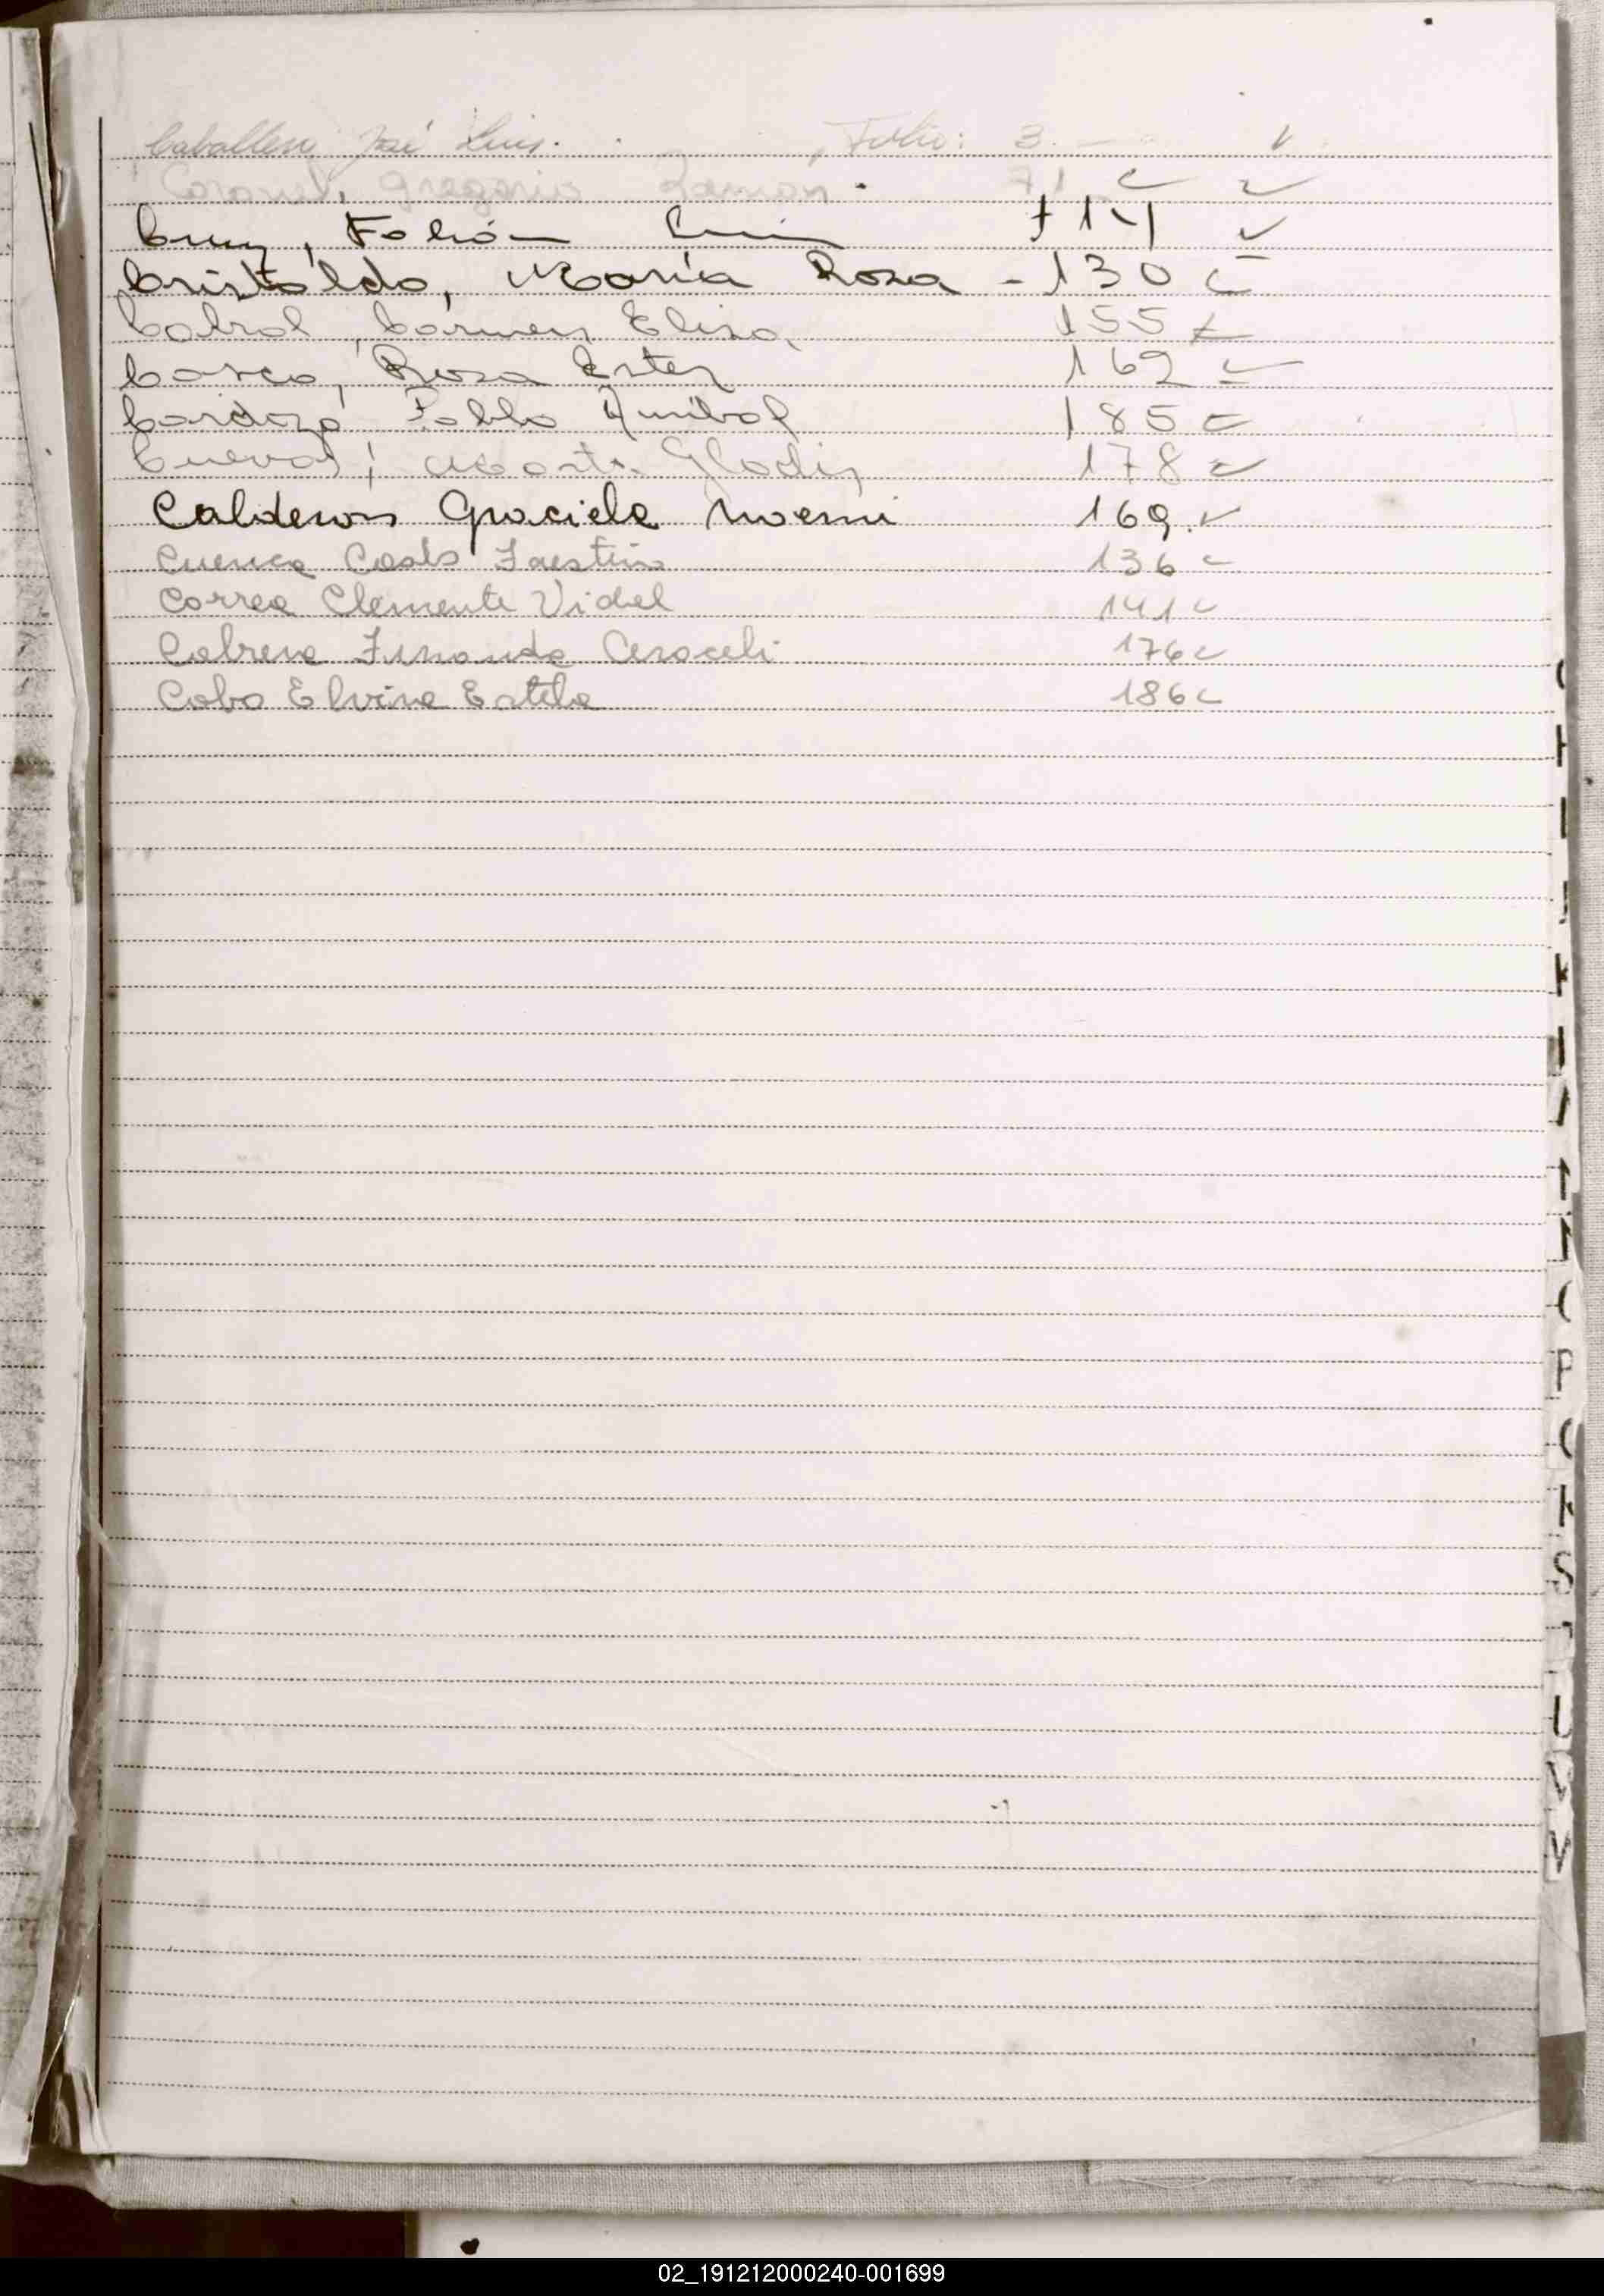 Caballero José Luis. Folio: 3. —
Coronel, Gregorio Ramon. 71
Cruz, Fabián Luis 121
Cristaldo, María Rosa - 130
Cabral, Carmen Elisa 155
Casco, Rosa Ester 162
Cardozo Pablo Anibal 185
Cuevas, Marta Gladis 178
Calderon Graciela Noemi 169
Cuenca Carlos Faustino 136
Correa Clemente Vidal 141
Cabrera Fernanda Araceli 176
Cobo Elvina Estela 186
P
S
V
02_191212000240-001699